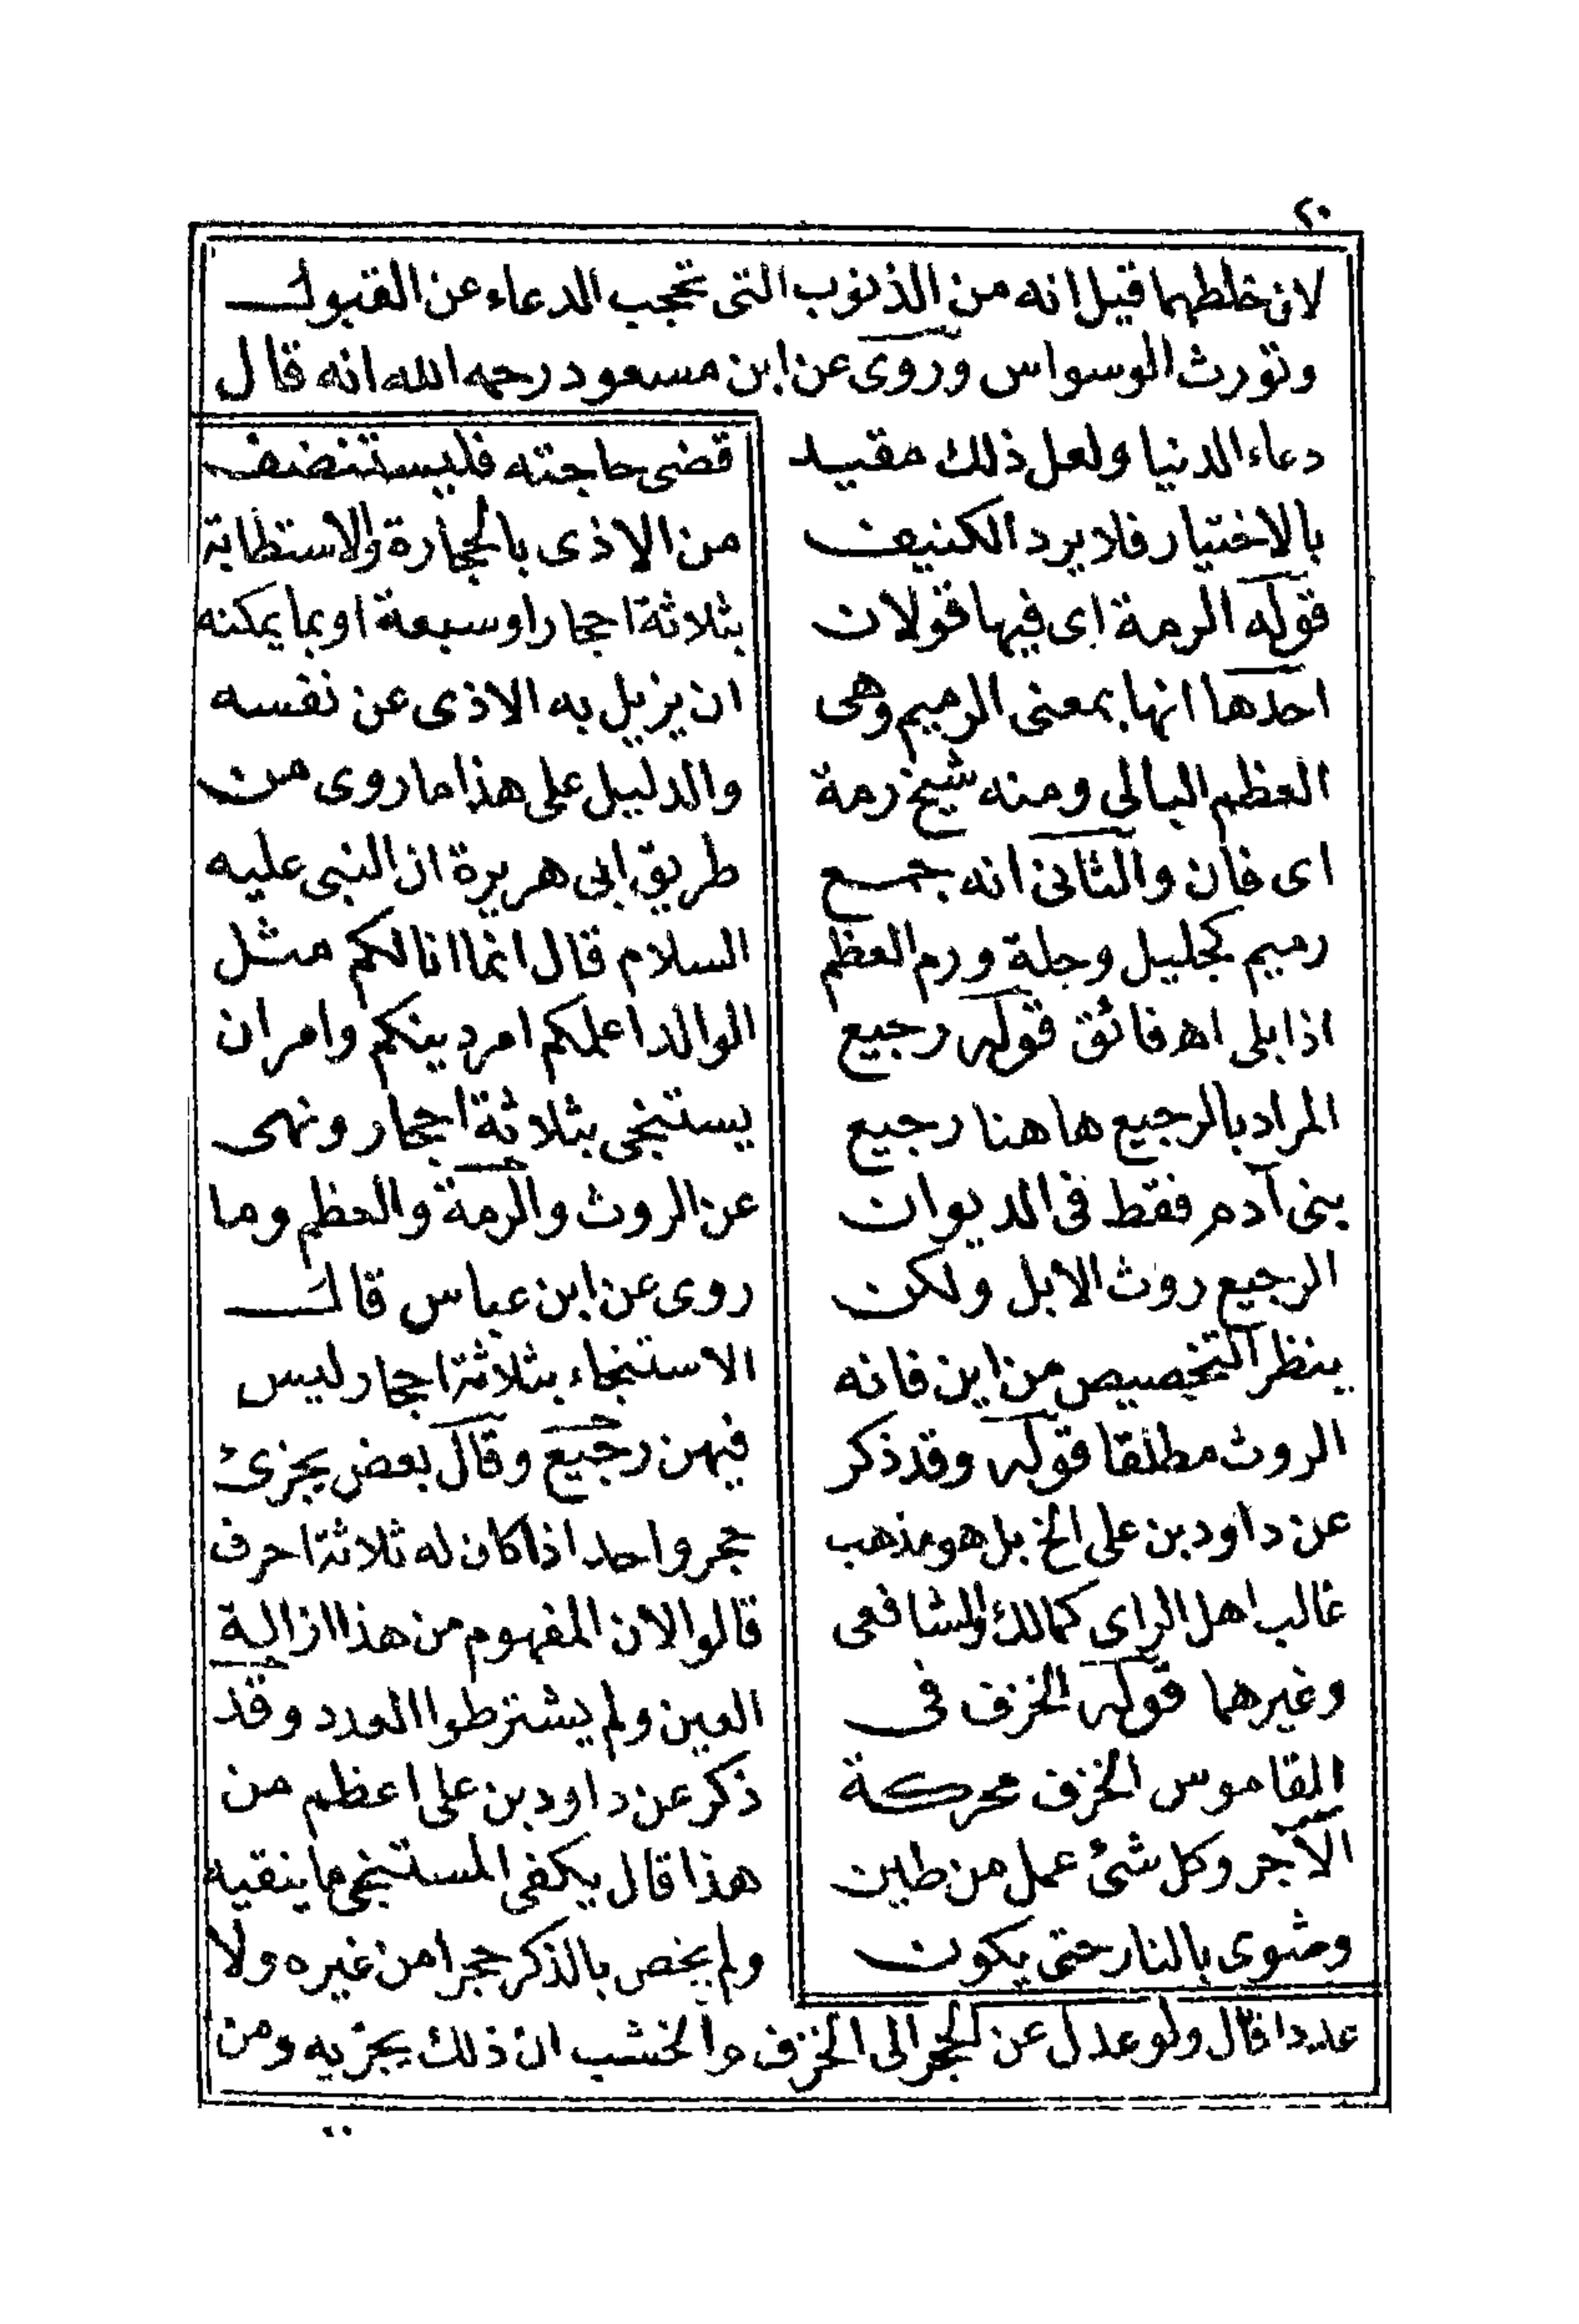 ٢٠
لان خلطهما قيل انه من الذنوب التى تحجب الدعاء عن القبول
وتورث الوسواس وروى عن ابن مسعود رحمه الله انه قال
دعاء الدنيا ولعل ذلك مقيد
بالاختيار فلا يرد الكنيف
قوله الرمة اى فيها قولان
احدها انها بمعنى الرميم وهى
العظم البالى ومنه شيخ رمة
اى فان والثانى انه جمع
رميم كجليل وجلة ورم العظم
اذا بلى اهـ فائق قوله رجيع
المراد بالرجيع هاهنا رجيع
بنى آدم فقط فى الديوان
الرجيع روث الابل ولكن
ينظر التخصيص من اين فانه
الروث مطلقا قوله وقد ذكر
عن داود بن على الخ بل هو مذهب
غالب اهل الراى كمالك والشافعى
وغيرهما قوله الخزف فى
القاموس الخزف محركة
الآجر وكل شئ عمل من طين
وشوى بالنار حتى يكون
قضى حاجته فليستنضف
من الاذى بالحجارة والاستطابة
بثلاثة احجار او سبعة او بما يمكنه
ان يزيل به الاذى عن نفسه
والدليل على هذا ما روى من
طريق ابى هريرة ان النبى عليه
السلام قال انما انا لكم مثل
الوالد اعلمكم امر دينكم وامر ان
يستنجى بثلاثة احجار ونهى
عن الروث والرمة والعظم وما
روى عن ابن عباس قال
الاستنجاء بثلاثة احجار ليس
فيهن رجيع وقال بعض يجزئ
حجر واحد اذا كان له ثلاثة احرف
قالوا لان المفهوم من هذا ازالة
العين ولم يشترطوا العدد وقد
ذكر عن داود بن على اعظم من
هذا قال يكفى المستنجى ما ينقيه
ولم يخص بالذكر حجرا من غيره ولا
عددا قال ولو عدل عن الحجر الى الخزف والخشب ان ذلك يجزيه ومن